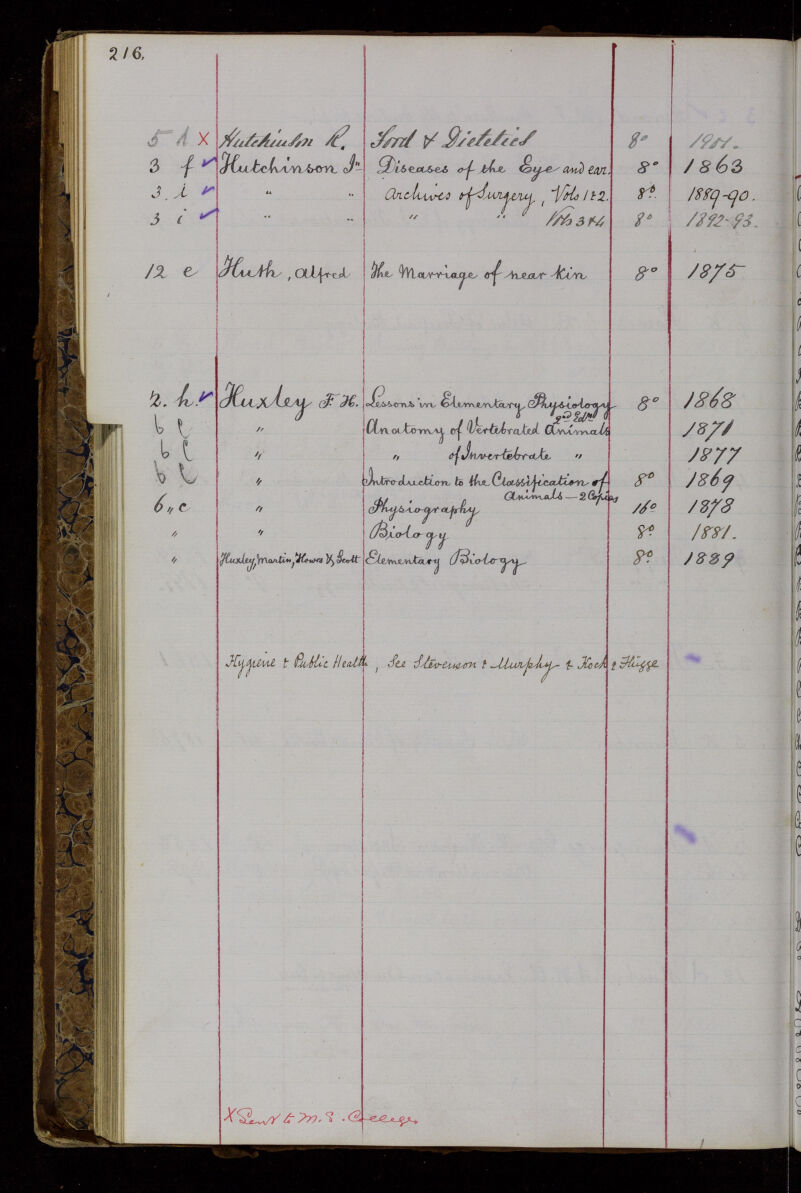 216.
5 h X Hutchinson R. Food & Dietetics 8° 1901.
3 f ✓ Hutchinson Jn Diseases of the Eye and ear. 8° 1863
3. i ✓ " " Archives of Surgery, Vols 1 & 2. 8° 1889-90.
3 i ✓ " " " " Vols 3 & 4 8° 1892-93.
12 e Huth, Alfred The Marriage of near Kin 8° 1875
2. h. ✓ Huxley F. H. Lessons in Elementary Physiology 2nd Edtn 8° 1868
6 e " Anatomy of Vertebrated Animals 1871
6 e " " of Invertebrate " 1877
6 e " Introduction to the Classification of Animals — 2 Copies 8° 1869
6 " c " Physiography 16° 1878
" " Biology 8° 1881.
" Huxley, Martin, Howes & Scott Elementary Biology 8° 1889
Hygiene & Public Health, See Stevenson & Murphy & Koch & Flügge
X Sent to M.S. College